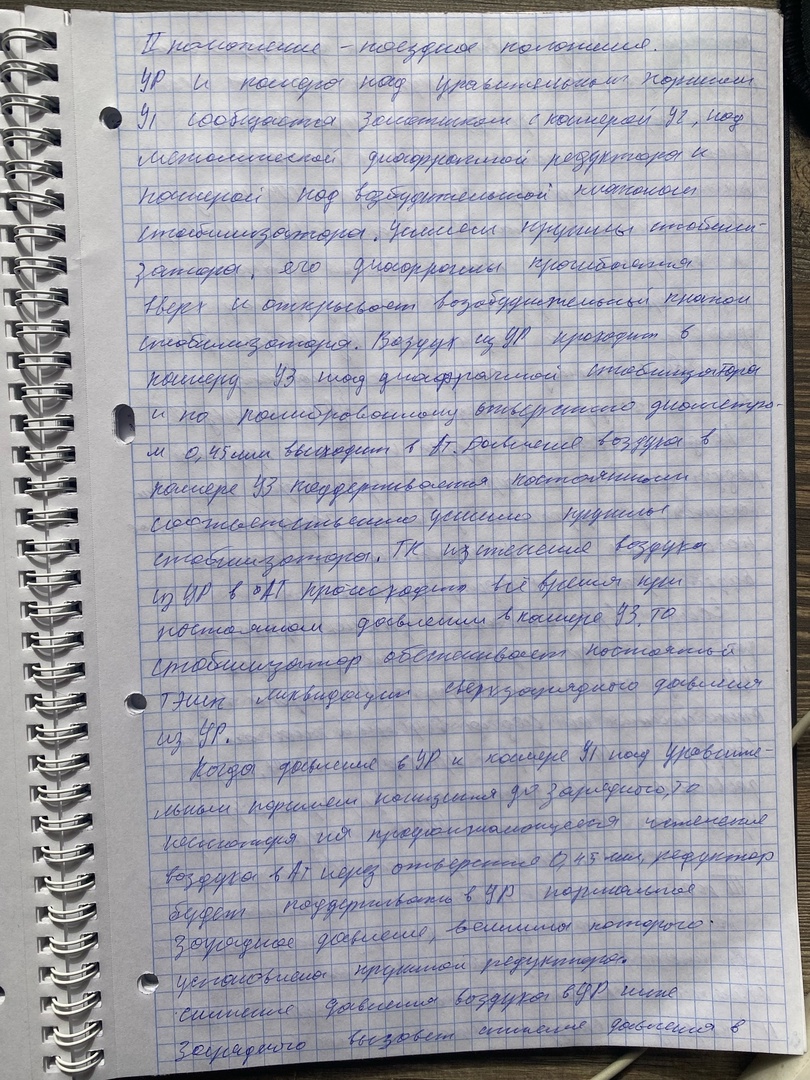 II положение – поездное положения.
УР и камера над уравнительным поршнем
У1 сообщается золотником с камерой У2, над
металической диафрагмой редуктора и
камерой над возбудительной клапаном
стабилизатора. Усилием пружины стабили-
затора. его диафрагмы прогибается
вверх и открывает возабудительный клапан
стабилизатора. Воздух из УР проходит в
камеру У3 над диафрагмой стабилизатора
и по калиброванному отверстию диаметро-
м 0,45 мм выходит в Ат. Давление воздуха в
камере У3 поддерживается постоянным
соответственно усилию пружины
стабилизатора. ТК изтенение воздуха
из УР в АТ происходит всё время при
постоянном давлении в камере У3, то
стабилизатор обеспечивает постоянный
тэмп ликвидации сверхзарядного давления
из УР.
Когда давление в УР и камере У1 над уравните-
льным поршнем понизится до зарядного, то
несмотря на продолжающееся истечение
воздуха в Ат через отверстие 0,45 мм, редуктор
будет поддерживать в УР нормальное
зарядное давление, величина которого
установлена пружиной редуктора.
снижение давления воздуха в УР ниже
зарядного вызовет снижение давления в